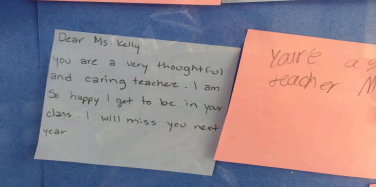 Dear Ms. Kelly
you are a very thoughtful
and caring teacher. I am
So happy I got to be in your
class. I will miss you next
year
You're a
teacher